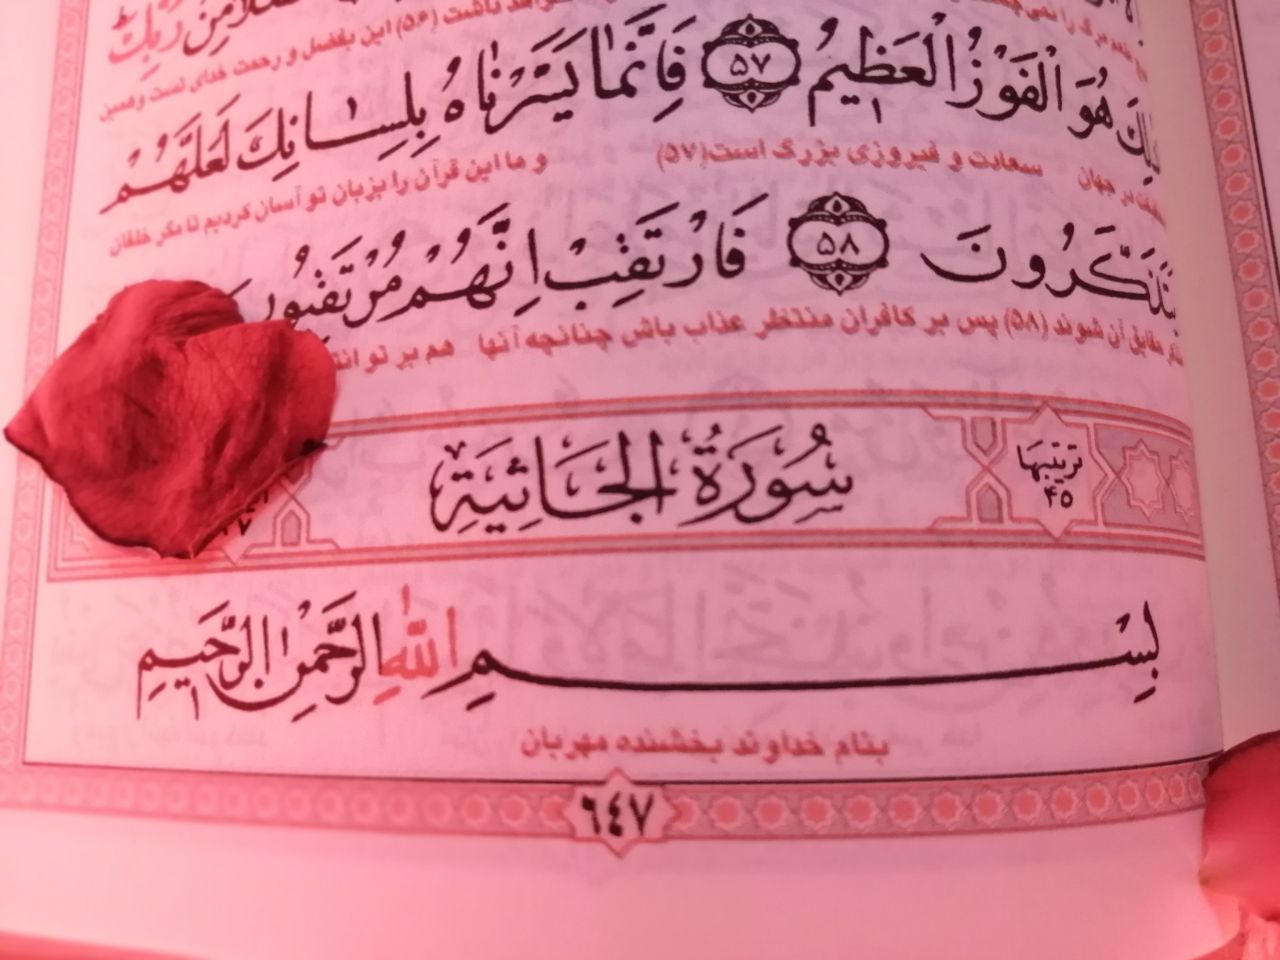 مِن رَبِّكَ
خواهند داشت (۵۶) این بفضل و رحمت خدای تست و همین
هُوَ الْفَوْزُ الْعَظِیمُ ۵۷ فَاِنَّمَا یَسَّرْنَاهُ بِلِسَانِكَ لَعَلَّهُمْ
در جهان سعادت و فیروزی بزرگ است(۵۷) و ما این قرآن را بزبان تو آسان کردیم تا مگر خلقان
یَتَذَكَّرُونَ ۵۸ فَارْتَقِبْ اِنَّهُمْ مُرْتَقِبُونَ
حقایق آن شوند (۵۸) پس بر کافران منتظر عذاب باش چنانچه آنها هم بر تو
ترتیبها ۴۵ سُورَةُ الْجَاثِیَةِ
بِسْمِ اللهِ الرَّحْمٰنِ الرَّحِیمِ
بنام خداوند بخشنده مهربان
٦٤٧